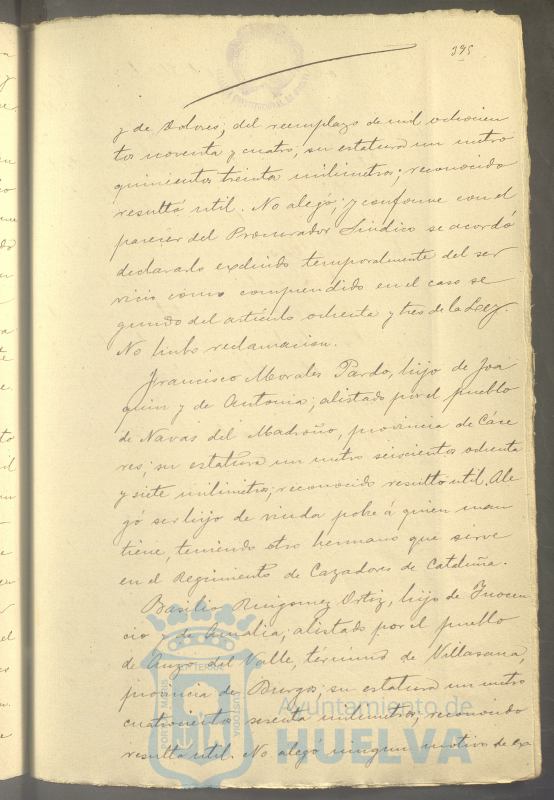 395
y de Dolores; del reemplazo de mil ochocien
tos noventa y cuatro, su estatura un metro
quinientos treinta milimetros; reconocido
resultó util. No alegó; y conforme con el
parecer del Procurador Sindico se acordó
declararlo excluido temporalmente del ser
vicio como comprendido en el caso se
gundo del articulo ochenta y tres de la Ley.
No hubo reclamacion.
Francisco Morales Pardo, hijo de Joa
quin y de Antonia; alistado por el pueblo
de Navas del Madroño, provincia de Cáce
res; su estatura un metro seiscientos ochenta
y siete milimetros; reconocido resultó util. Ale
gó ser hijo de viuda pobre á quien man
tiene, teniendo otro hermano que sirve
en el Regimiento de Cazadores de Cataluña.
Basilio Ruigomez Ortiz, hijo de Inocen
cio y de Amalia; alistado por el pueblo
de Anzo del Valle, término de Villasana,
provincia de Burgos; su estatura un metro
cuatrocientos sesenta milimetros; reconocido
resultó util. No alegó ningun motivo de ex
PORTUS MARIS
ET TERRAE
CUSTODIA
Ayuntamiento de
HUELVA